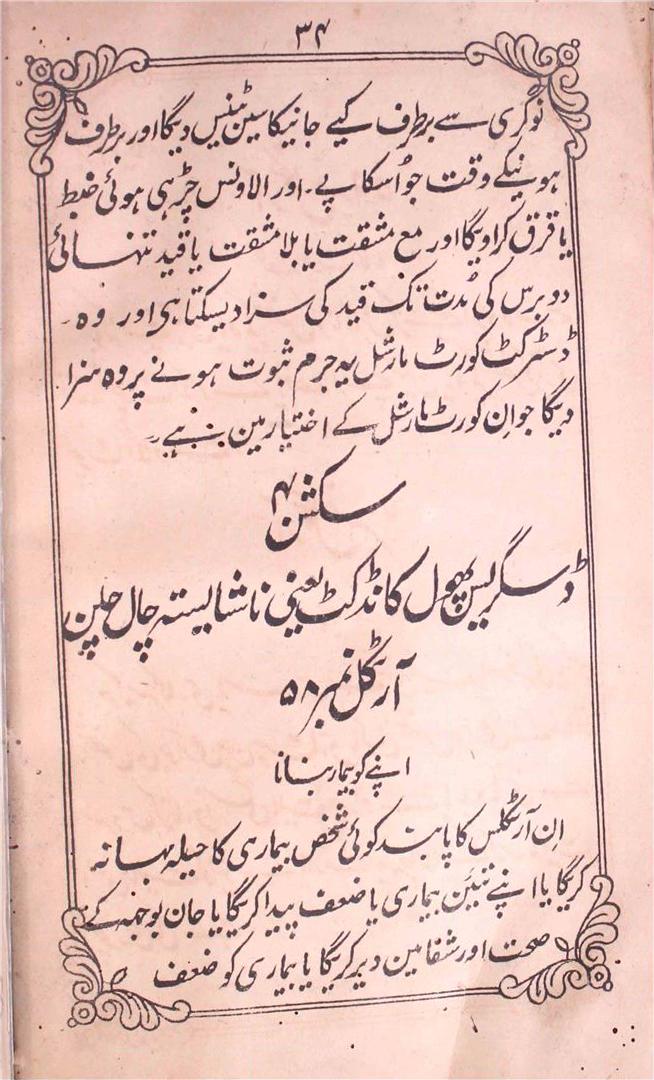 ۳۴
نوکری سے برطرف کیے جانیکا سین ٹینس دیگا اور برطرف
ہونیکے وقت جو اُسکا پے۔ اور الاونس چڑہی ہوئی ضبط
یا قرق کراویگا اور مع مشقت یا بلا مشقت یا قید تنہائی
دو برس کی مُدت تک قید کی سزا دیسکتا ہی اور وہ۔
ڈسٹرکٹ کورٹ مارشل یہ جرم ثبوت ہونے پر وہ سزا
دیگا جو اِن کورٹ مارشل کے اختیار مین ہے۔
سکشن ۴
ڈسگریس پھول کانڈکٹ یعنی ناشایستہ چال چلن
آرٹکل نمبر ۵۸
اپنے کو بیمار بنانا
اِن آرٹکلس کا پابند کوئی شخص بیماری کا حیلہ بہانہ
کریگا یا اپنے تئین بیماری یا ضعف پیدا کریگا یا جان بوجہہ کے
صحت اور شفا مین دیر کریگا یا بیماری کو ضعف